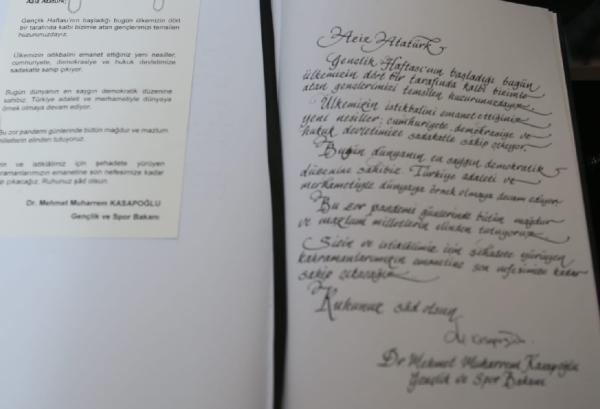 Aziz Atatürk,
Gençlik Haftası'nın başladığı bugün ülkemizin dört
bir tarafında kalbi bizimle atan gençlerimizi temsilen
huzurunuzdayız.
Ülkemizin istikbalini emanet ettiğiniz yeni nesiller,
cumhuriyete, demokrasiye ve hukuk devletimize
sadakatle sahip çıkıyor.
Bugün dünyanın en saygın demokratik düzenine
sahibiz. Türkiye adaleti ve merhametiyle dünyaya
örnek olmaya devam ediyor.
Bu zor pandemi günlerinde bütün mağdur ve mazlum
milletlerin elinden tutuyoruz.
ve istiklâlimiz için şehadete yürüyen
kahramanlarımızın emanetine son nefesimize kadar
sahip çıkacağız. Ruhunuz şâd olsun.
Dr. Mehmet Muharrem KASAPOĞLU
Gençlik ve Spor Bakanı
Aziz Atatürk,
Gençlik Haftası'nın başladığı bugün
ülkemizin dört bir tarafında kalbi bizimle
atan gençlerimizi temsilen huzurunuzdayız.
Ülkemizin istikbalini emanet ettiğiniz
yeni nesiller; cumhuriyete, demokrasiye ve
hukuk devletimize sadakatle sahip çıkıyor.
Bugün dünyanın en saygın demokratik
düzenine sahibiz. Türkiye adaleti ve
merhametiyle dünyaya örnek olmaya devam ediyor.
Bu zor pandemi günlerinde bütün mağdur
ve mazlum milletlerin elinden tutuyoruz.
Sizin ve istiklâlimiz için şehadete yürüyen
kahramanlarımızın emanetine son nefesimize kadar
sahip çıkacağız.
Ruhunuz şâd olsun
Dr Mehmet Muharrem Kasapoğlu
Gençlik ve Spor Bakanı